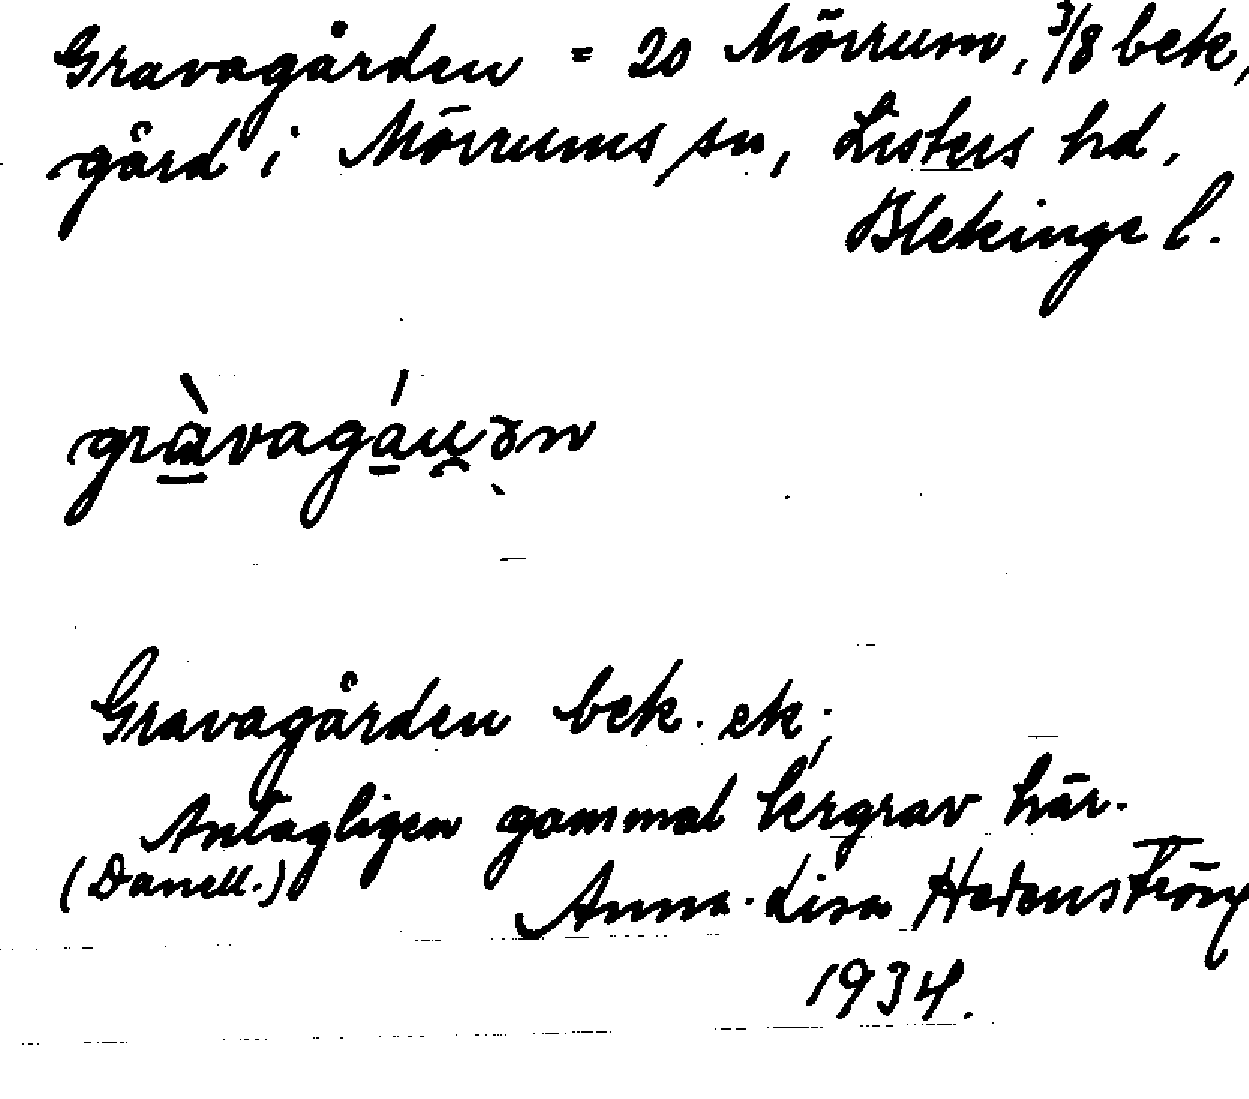 Gravagården = 20 Mörrum, 3/8 bek,
gård i Mörrums sn, Listers hd,
Blekinge l.
gràvagáu̯ən
Gravagården bek. ek;
Antagligen gammal lergrav här.
(Danell.)
Anna-Lisa Hedenström
1934.